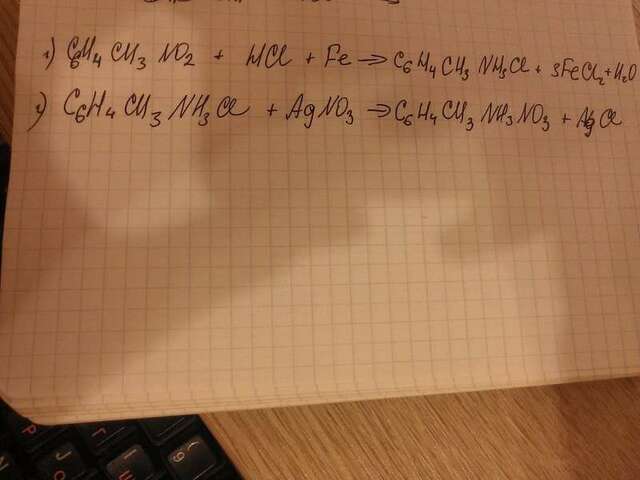 1) C6H4 CH3 NO2 + HCl + Fe → C6H4 CH3 NH3Cl + 3FeCl2 + H2O
2) C6H4 CH3 NH3Cl + AgNO3 → C6H4 CH3 NH3 NO3 + AgCl